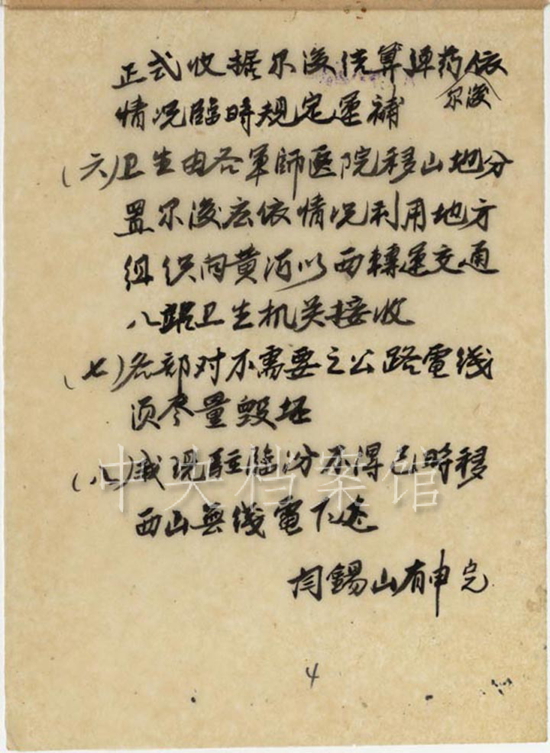 正式收据尔后结算弹药依
情况临時规定运補
尔後
(六)卫生由各軍師医院移山地分
置尔後应依情况利用地方
组织向黄河以西轉运交通
八路卫生机关接收
(七)各部对不需要之公路電线
须尽量毁坯
(八)我现驻临汾不得已時移
西山無线電下达
闫錫山有申完
4
中央档案馆